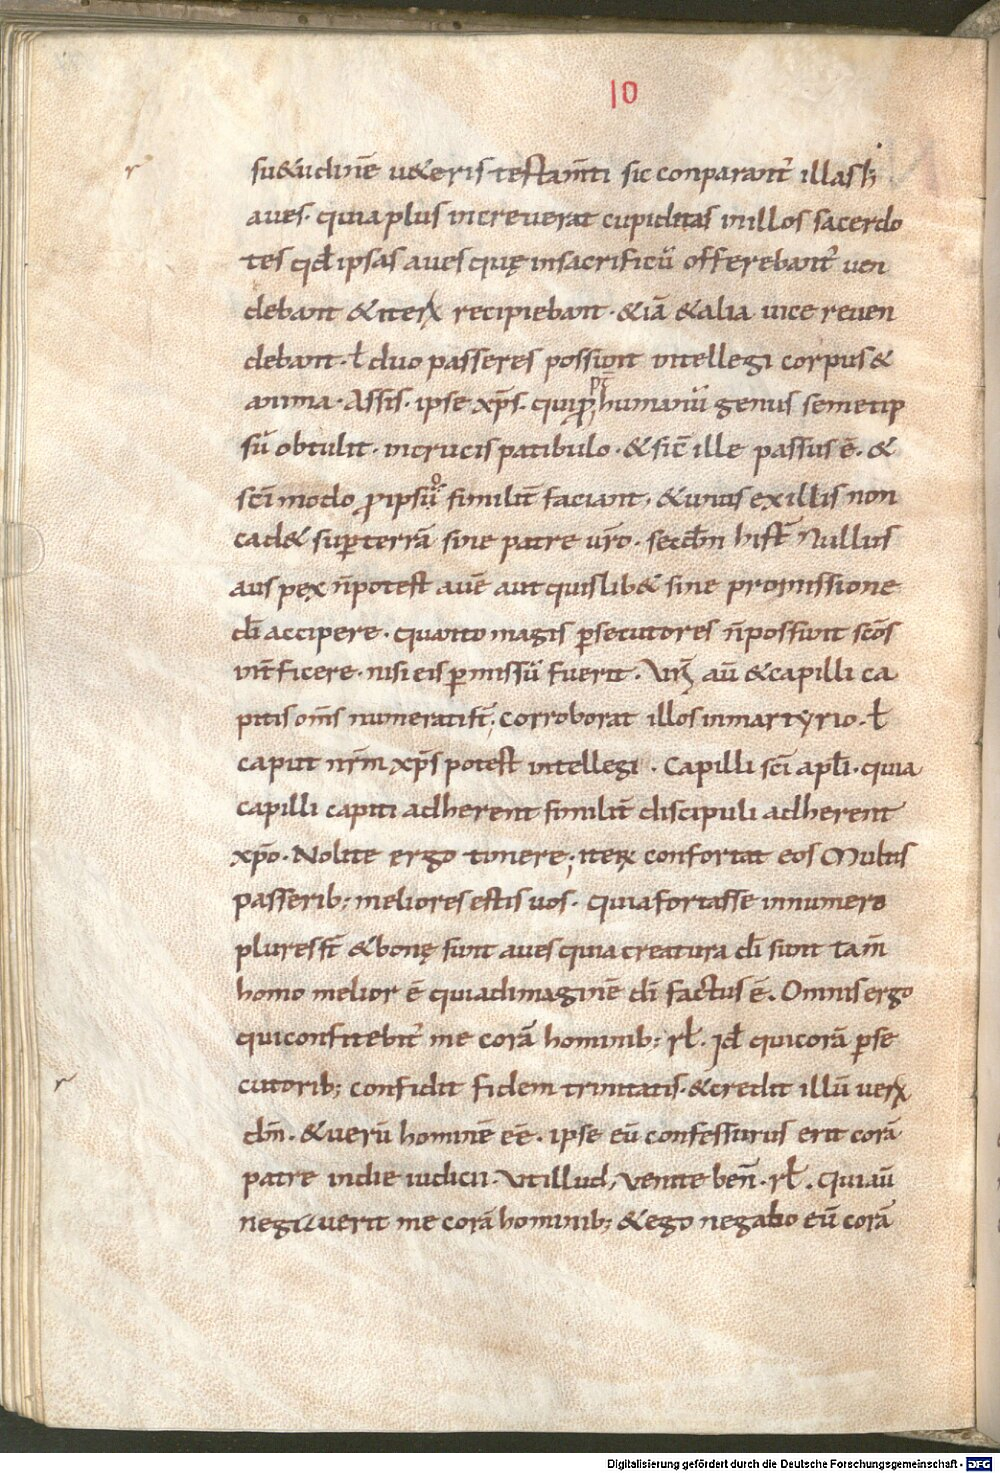 10
su&udinē u&eris testam̄ti sic conparant᷑ illas h̓
aues · quia plus increuerat cupiditas in illos sacerdo
tes qđ ipsas aues quę in sacrificiū offerebant᷑ uen
debant & iteꝝ recipiebant · & iā & alia uice reuen
debant · ł duo passeres possunt intellegi corpus &
anima · Assis · ipse xp̄s · qui ꝓpt̄ humanū genus semetip
sū obtulit · in crucis patibulo · & sic̄ ille passus ē · &
sc̄i modo ꝓ ipsūo similit̄ faciant · & unus ex illis non
cad& sup̱ terrā sine patre ur̄o · secđm hist̄ Nullus
auspex n̄ potest auē aut quislib& sine promissione
dī accipere · quanto magis ꝑsecutores n̄ possunt sc̄os
int̄ficere · nisi eis ꝑmissū fuerit · Ur̄i aū & capilli ca
pitis om̄s numerati st̄; corroborat illos in martyrio · ł
caput nr̄m xp̄s potest intellegi · Capilli sc̄i apłi · quia
capilli capiti adherent similit̄ discipuli adherent
xp̄o · Nolite ergo timere; iteꝝ confortat eos Multis
passerib; meliores estis uos · quia fortasse in numero
plures st̄ & bonę sunt aues quia creatura dī sunt tam̄
homo melior ē quia ad imaginē dī factus ē · Omnis ergo
qui confitebit᷑ me corā hominib; rł · Id̄ qui corā ꝑse
cutorib; confidit fidem trinitatis · & credit illū ueꝝ
dm̄ · & uerū hominē eē · ipse eū confessurus erit corā
patre in die iudicii · Ut illud, uenite ben̄ · rł · Qui aū
negauerit me corā hominib; & ego negabo eū corā
Digitalisierung gefördert durch die Deutsche Forschungsgemeinschaft - DFG